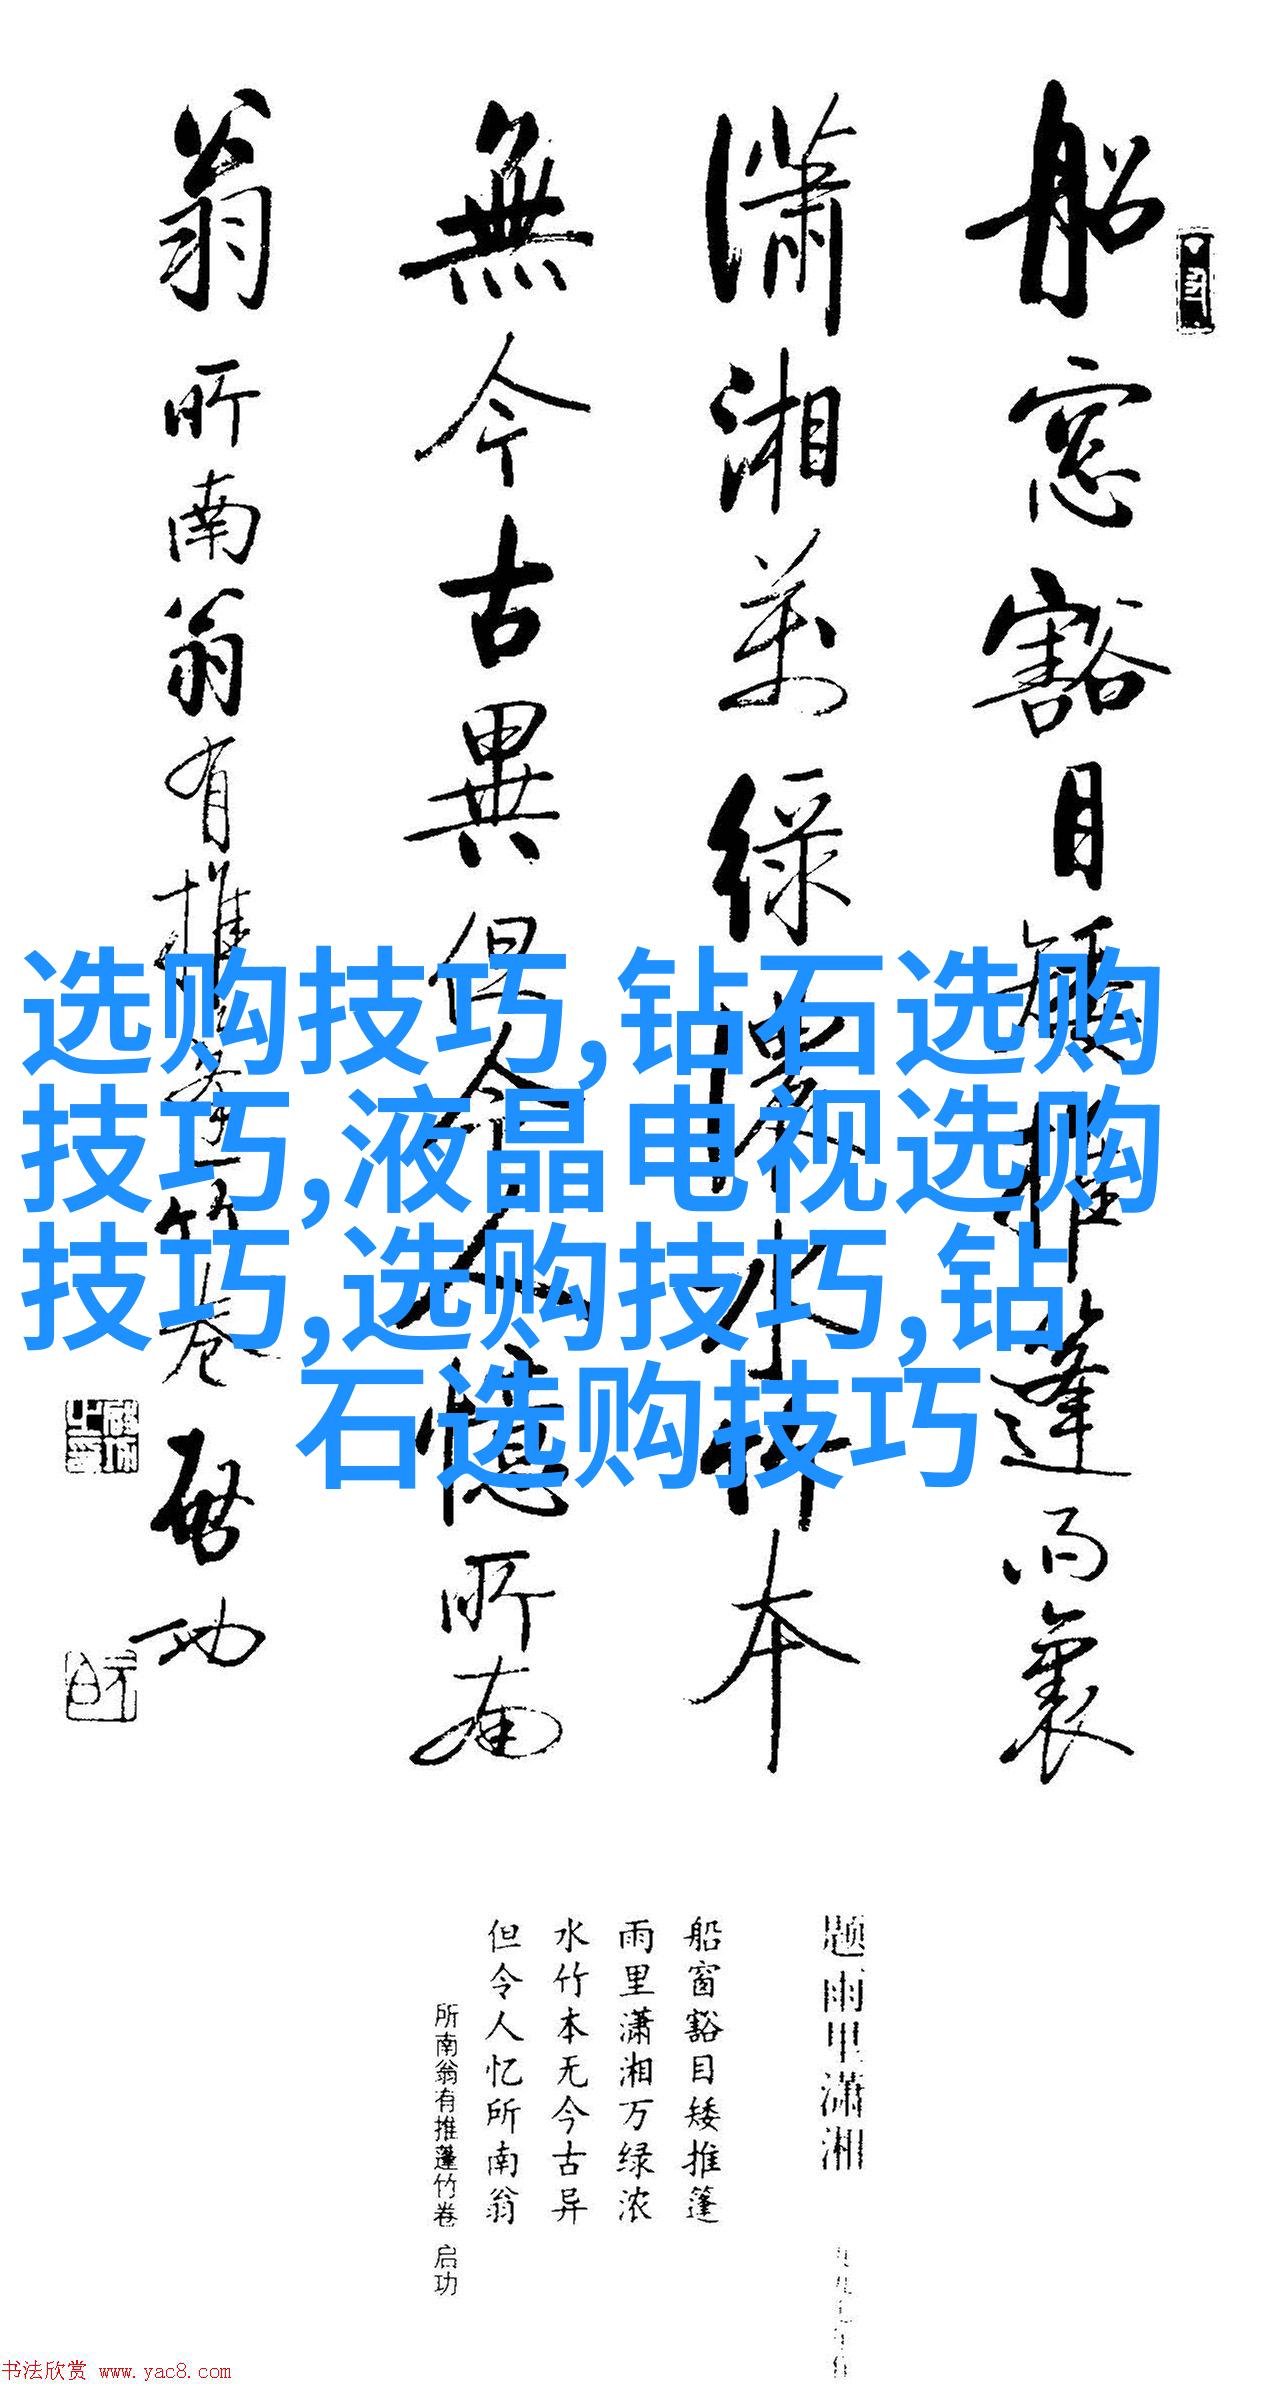 船窓豁目矮推篷雨裏
瀟湘萬綠濃水竹本
無今古異但令人憶所南
翁 所南翁有推篷竹卷 啓功
选购技巧,钻石选购
技巧,液晶电视选购
技巧,选购技巧,钻
石选购技巧
题雨里潇湘
船窗豁目矮推篷
雨里潇湘万绿浓
水竹本无今古异
但令人忆所南翁
所南翁有推蓬竹卷 启功
书法欣赏 www.yac8.com